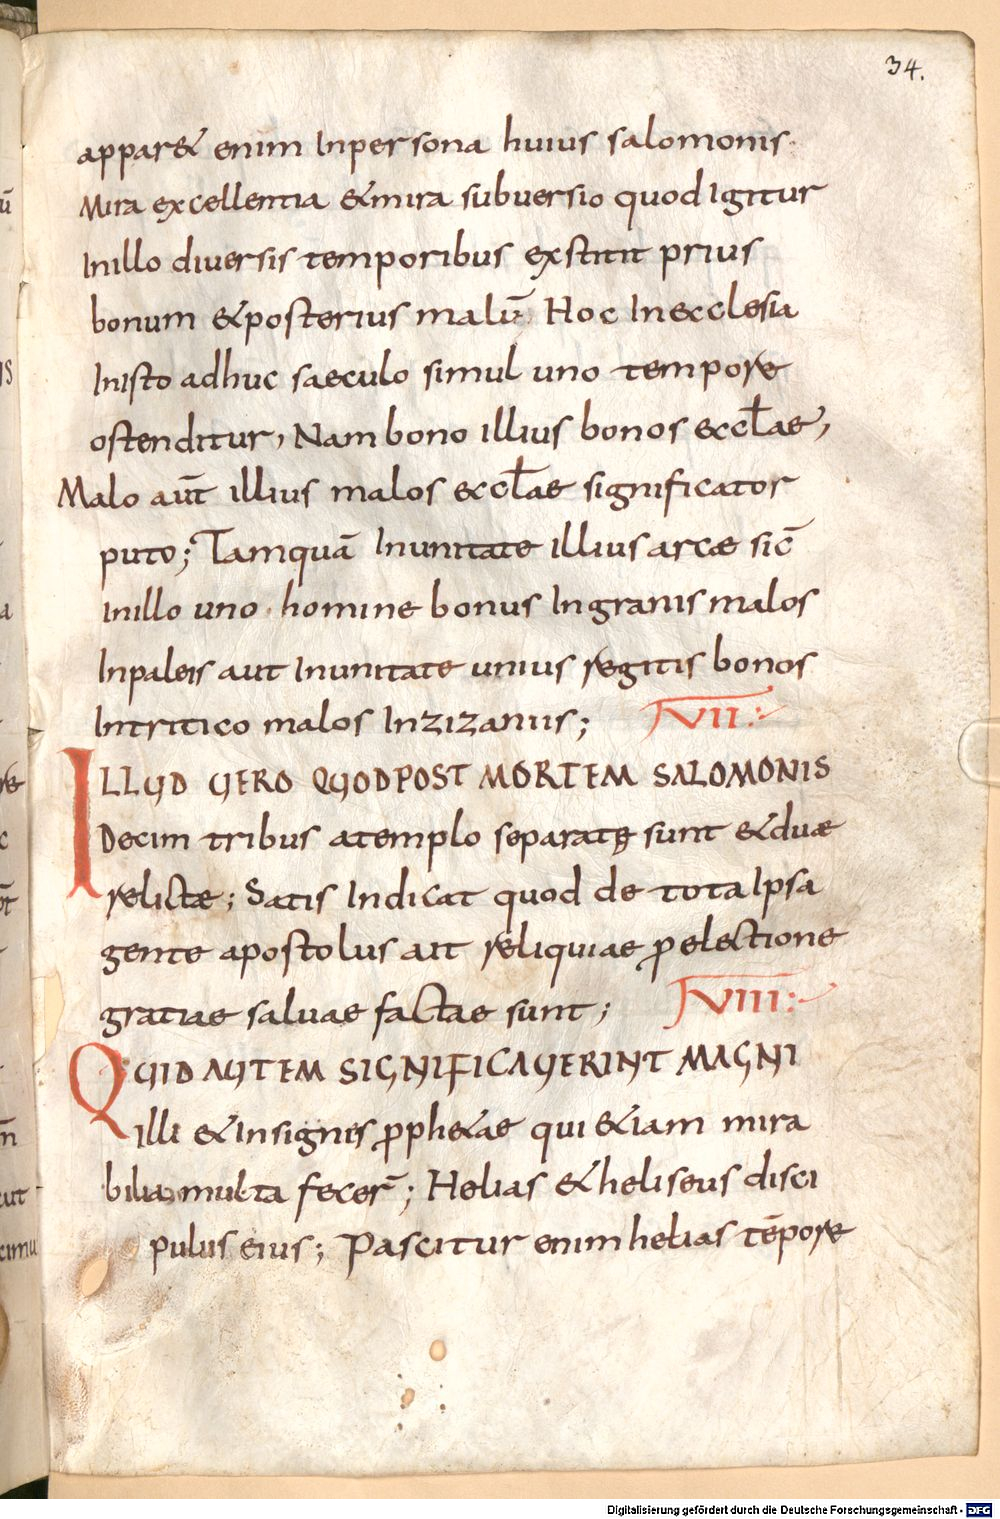 34.
apparet enim Inpersona huius salomonis·
Mira excellentia &mira subuersio quod Igitur
Inillo diuersis temporibus exstitit prius
bonum &posterius malū· Hoc Inecclesia
Inisto adhuc saeculo simul uno tempore
ostenditur, Nam bono illius bonos eccƚae,
Malo aūt illius malos eccƚae significator
puto; Tamquā Inunitate illius arcae sic̄
Inillo uno · homine bonus Ingranis malos
Inpaleis aut Inunitate unius regitis bonos
Intritico malos Inzizaniis; XVII:
ILLUD UERO QUODPOST MORTEM SALOMONIS
Decim tribus atemplo separatę sunt &duæ
relictæ; Satis Indicat quod de tota Ipsa
gente apostolus ait reliquiae ꝑ electione
gratiae saluae factae sunt; XVIII:
QUID AUTEM SIGNIFICAUERINT MAGNI
illi &Insignes ꝓph&ae qui &iam mira
bilia multa fecer̄; Helias &heliseus disci
pulus eius; Pascitur enim helias tēpore
Digitalisierung gefördert durch die Deutsche Forschungsgemeinschaft - DFG